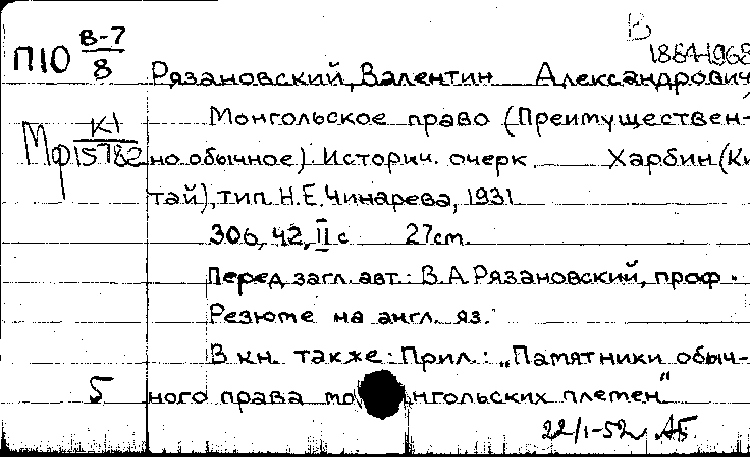 В
П10 В-7/8
1884-1968
Рязановский, Валентин Александрович
Монгольское право (Преимуществен-
Мф К1/15782
но обычное). Историч. очерк. Харбин (Ки
тай), тип. Н.Е. Чинарева, 1931
306, 42, II с 27cm.
Перед загл. авт.: В.А Рязановский, проф.
Резюме на англ. яз.
В кн. также: Прил.: „Памятники обыч-
5 ного права монгольских племен"
22/I-52 АБ.